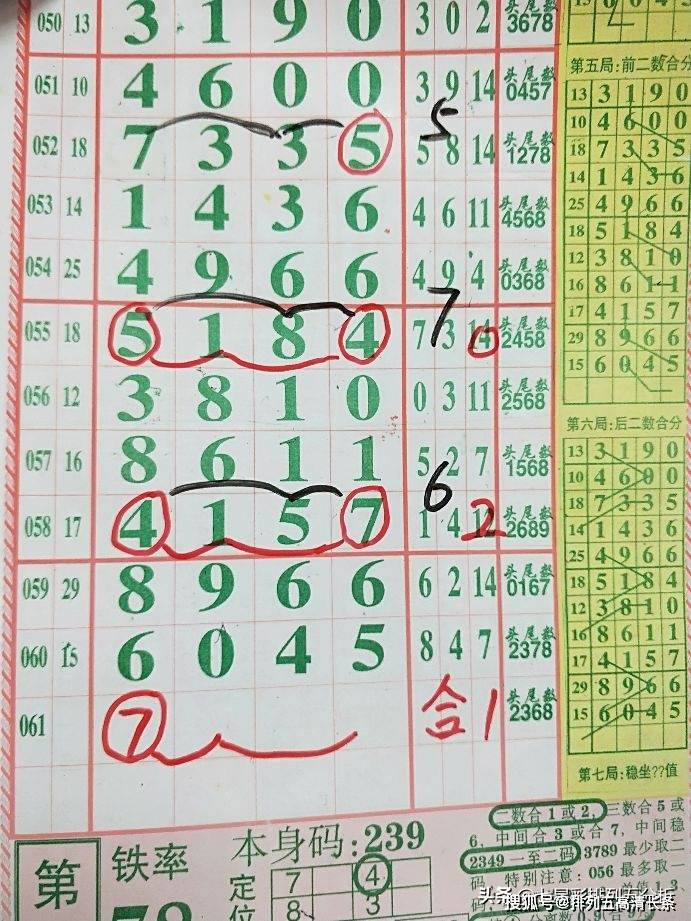 050 13 3 1 9 0 3 0 2 3678
051 10 4 6 0 0 3 9 14 头尾数 0457
5
052 18 7 3 3 5 5 8 14 头尾数 1278
053 14 1 4 3 6 4 6 11 头尾数 4568
054 25 4 9 6 6 4 9 4 头尾数 0368
7
055 18 5 1 8 4 7 3 14 头尾数 2458
056 12 3 8 1 0 0 3 11 头尾数 2568
057 16 8 6 1 1 5 2 7 头尾数 1568
6
058 17 4 1 5 7 1 4 2 头尾数 2689
059 29 8 9 6 6 6 2 14 头尾数 0167
060 15 6 0 4 5 8 4 7 头尾数 2378
061 7 合1 头尾数 2368
第五局:前二数合分
13 3 1 9 0
10 4 6 0 0
18 7 3 3 5
14 1 4 3 6
25 4 9 6 6
18 5 1 8 4
12 3 8 1 0
16 8 6 1 1
17 4 1 5 7
29 8 9 6 6
15 6 0 4 5
第六局:后二数合分
13 3 1 9 0
10 4 6 0 0
18 7 3 3 5
14 1 4 3 6
25 4 9 6 6
18 5 1 8 4
12 3 8 1 0
16 8 6 1 1
17 4 1 5 7
29 8 9 6 6
15 6 0 4 5
第七局:稳坐??值
第
铁率
78
本身码:239
定位
7 4
8 3
二数合1或2,三数合5或
6,中间合3或合7,中间稳
2349一至二码 3789最少取二
码 特别注意:056最多取一
搜狐号@排列五高清长条